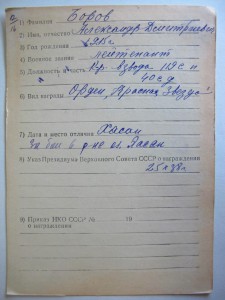 1) Фамилия Боров
2) Имя, отчество Александр Дмитриевич
3) Год рождения 1915 г.
4) Военное звание лейтенант
5) Должность и часть Ком. взвода 119 с. п
40 с д
6) Вид награды Орден „Красная Звезда"
7) Дата и место отличия Хасан
За бои в р-не оз. Хасан
8) Указ Президиума Верховного Совета СССР о награждении
25 X 38 г.
9) Приказ НКО СССР № 19
о награждении